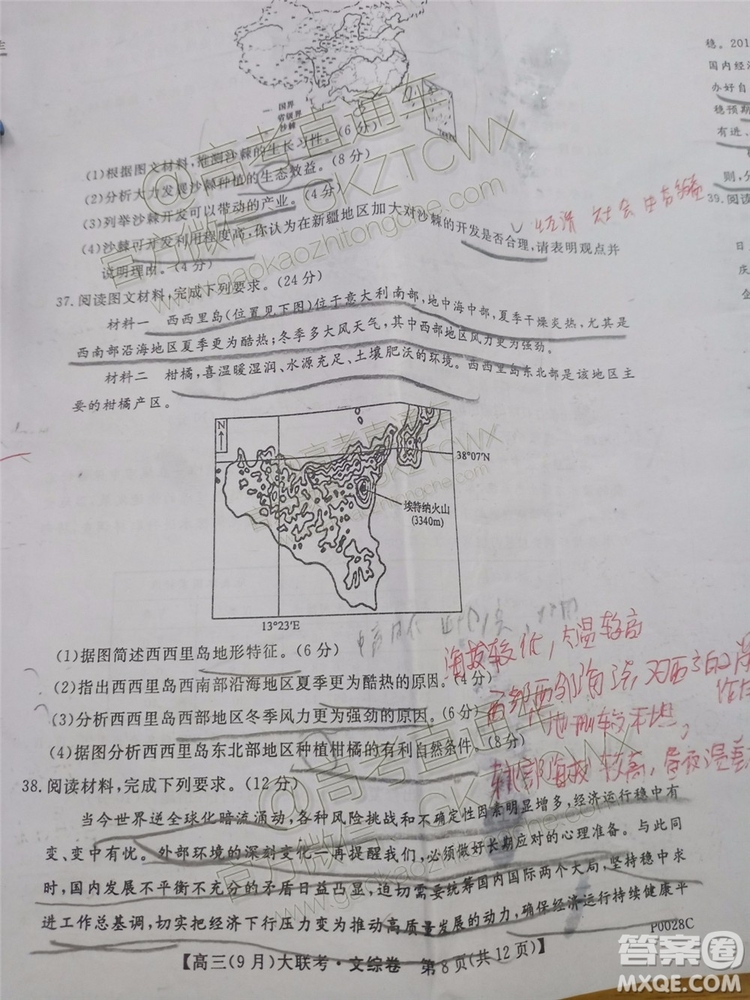 国界
省级界
沙棘
(1)根据图文材料,推测沙棘的生长习性。(6 分)
(2)分析大力发展沙棘种植的生态效益。(8 分)
(3)列举沙棘开发可以带动的产业。(4 分)
(4)沙棘可开发利用程度高,你认为在新疆地区加大对沙棘的开发是否合理,请表明观点并
说明理由。(4 分)
经济 社会
37. 阅读图文材料,完成下列要求。(24 分)
材料一 西西里岛(位置见下图)位于意大利南部,地中海中部,夏季干燥炎热,尤其是
西南部沿海地区夏季更为酷热;冬季多大风天气,其中西部地区风力更为强劲。
材料二 柑橘,喜温暖湿润、水源充足、土壤肥沃的环境。西西里岛东北部是该地区主
要的柑橘产区。
N
38°07′N
埃特纳火山
(3340m)
13°23′E
(1)据图简述西西里岛地形特征。(6 分)
海拔较低,气温较高
(2)指出西西里岛西南部沿海地区夏季更为酷热的原因。(4 分)
(3)分析西西里岛西部地区冬季风力更为强劲的原因。(6 分)
地形较平坦,
(4)据图分析西西里岛东北部地区种植柑橘的有利自然条件。(8 分)
海拔较高,昼夜温差
38. 阅读材料,完成下列要求。(12 分)
当今世界逆全球化暗流涌动,各种风险挑战和不确定性因素明显增多,经济运行稳中有
变、变中有忧。外部环境的深刻变化一再提醒我们,必须做好长期应对的心理准备。与此同
时,国内发展不平衡不充分的矛盾日益凸显,迫切需要统筹国内国际两个大局,坚持稳中求
进工作总基调,切实把经济下行压力变为推动高质量发展的动力,确保经济运行持续健康平
P0028C
【高三(9 月)大联考·文综卷 第 8 页(共 12 页)】
稳。201
国内经济
办好自
稳预期
有进、
则,分
39. 阅读
@高考直通车
官方微信:GKZTCWX
www.gaokaozhitongche.com
答案圈
MXQE.COM